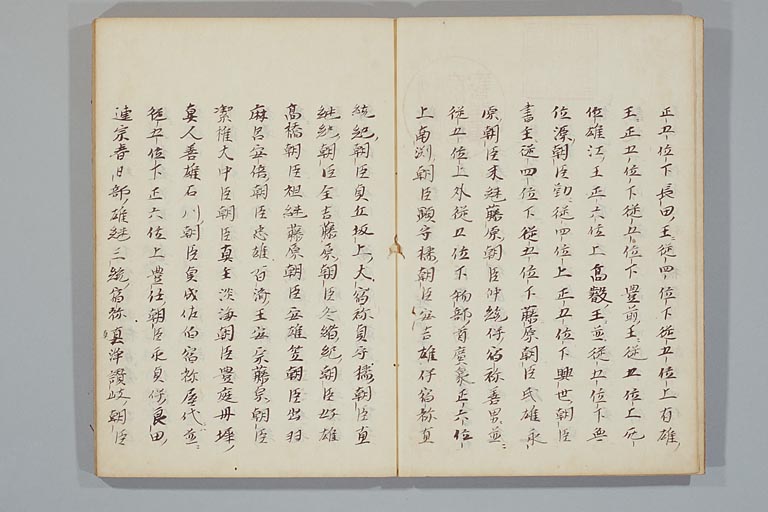 正五位下長田王従四位下従五位上有雄
王正五位下従五位下豊前王従五位上
位雄江王正六位上高穀王並従五位下無
位源朝臣勤従四位上正五位下興世朝臣
書主従四位下従五位下藤原朝臣氏雄永
原朝臣末継藤原朝臣仲統伴宿祢善男並
従五位上外従五位下物部首廣泉正六位
上南渕朝臣 守橘朝臣安吉雄伴宿祢真
統紀朝臣貞丘坂上大宿祢貞守橘朝臣直
継紀朝臣全吉藤原朝臣冬緒紀朝臣好雄
高橋朝臣祖継藤原朝臣安雄笠朝臣出羽
麻呂安倍朝臣忠雄百済王安宗藤原朝臣
潔雄大中臣朝臣真主淡海朝臣豊庭丹墀
真人善雄石川朝臣貞成佐伯宿祢屋代並
従五位下正六位上豊住朝臣永貞伴良田
連宗春日部雄継三統宿祢真浄讃岐朝臣